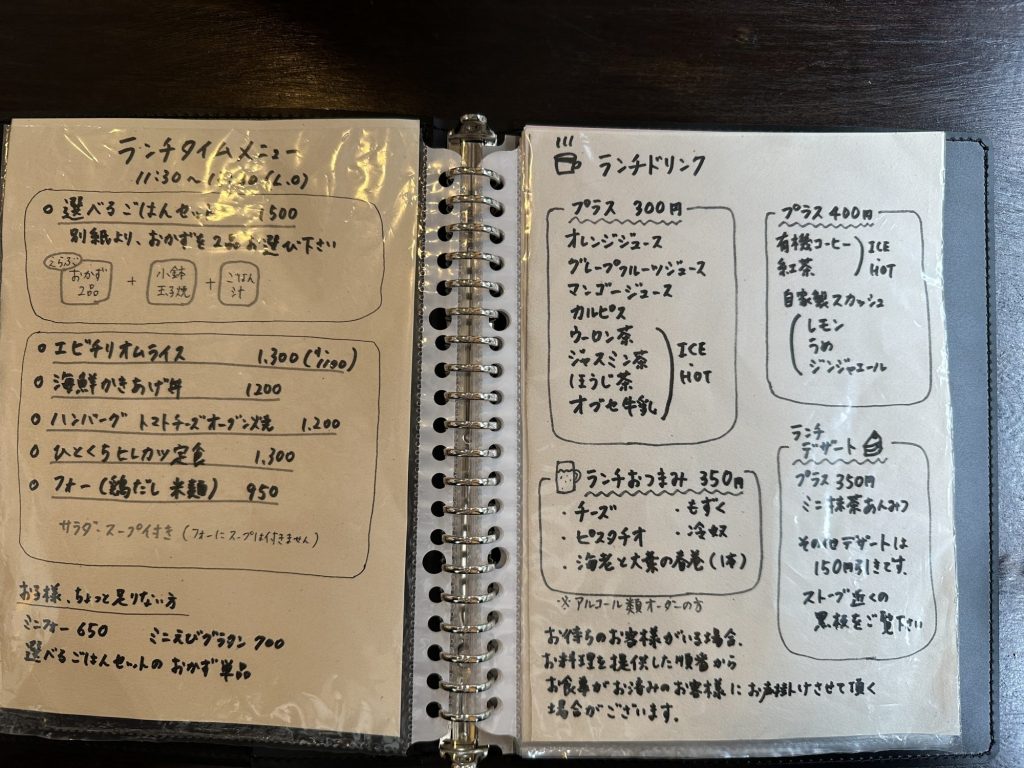 ランチタイムメニュー
11:30～
選べるごはんセット 1500
別紙より、おかずを2品お選び下さい
えらぶ
おかず
2品
+
小鉢
玉子焼
+
ごはん
汁
エビチリオムライス 1.300
海鮮かきあげ丼 1200
ハンバーグ トマトチーズオーブン焼 1.200
ひとくちヒレカツ定食 1.300
フォー(鶏だし 米麺) 950
サラダ・スープ付き (フォーにスープは付きません)
お子様、ちょっと足りない方
ミニフォー 650 ミニえびグラタン 700
選べるごはんセットの おかず単品
ランチドリンク
プラス 300円
オレンジジュース
グレープフルーツジュース
マンゴージュース
カルピス
ウーロン茶
ジャスミン茶
ほうじ茶
オブセ牛乳
ICE
・
HOT
プラス 400円
有機コーヒー
紅茶
ICE
・
HOT
自家製スカッシュ
レモン
うめ
ジンジャエール
ランチおつまみ 350円
・チーズ ・もずく
・ピスタチオ ・冷奴
・海老と大葉の春巻(1本)
※アルコール類オーダーの方
ランチ
デザート
プラス 350円
ミニ抹茶あんみつ
その他デザートは
150円引きです。
ストーブ近くの
黒板をご覧下さい
お待ちのお客様がいる場合、
お料理を提供した順番から
お食事がお済みのお客様にお声掛けさせて頂く
場合がございます。